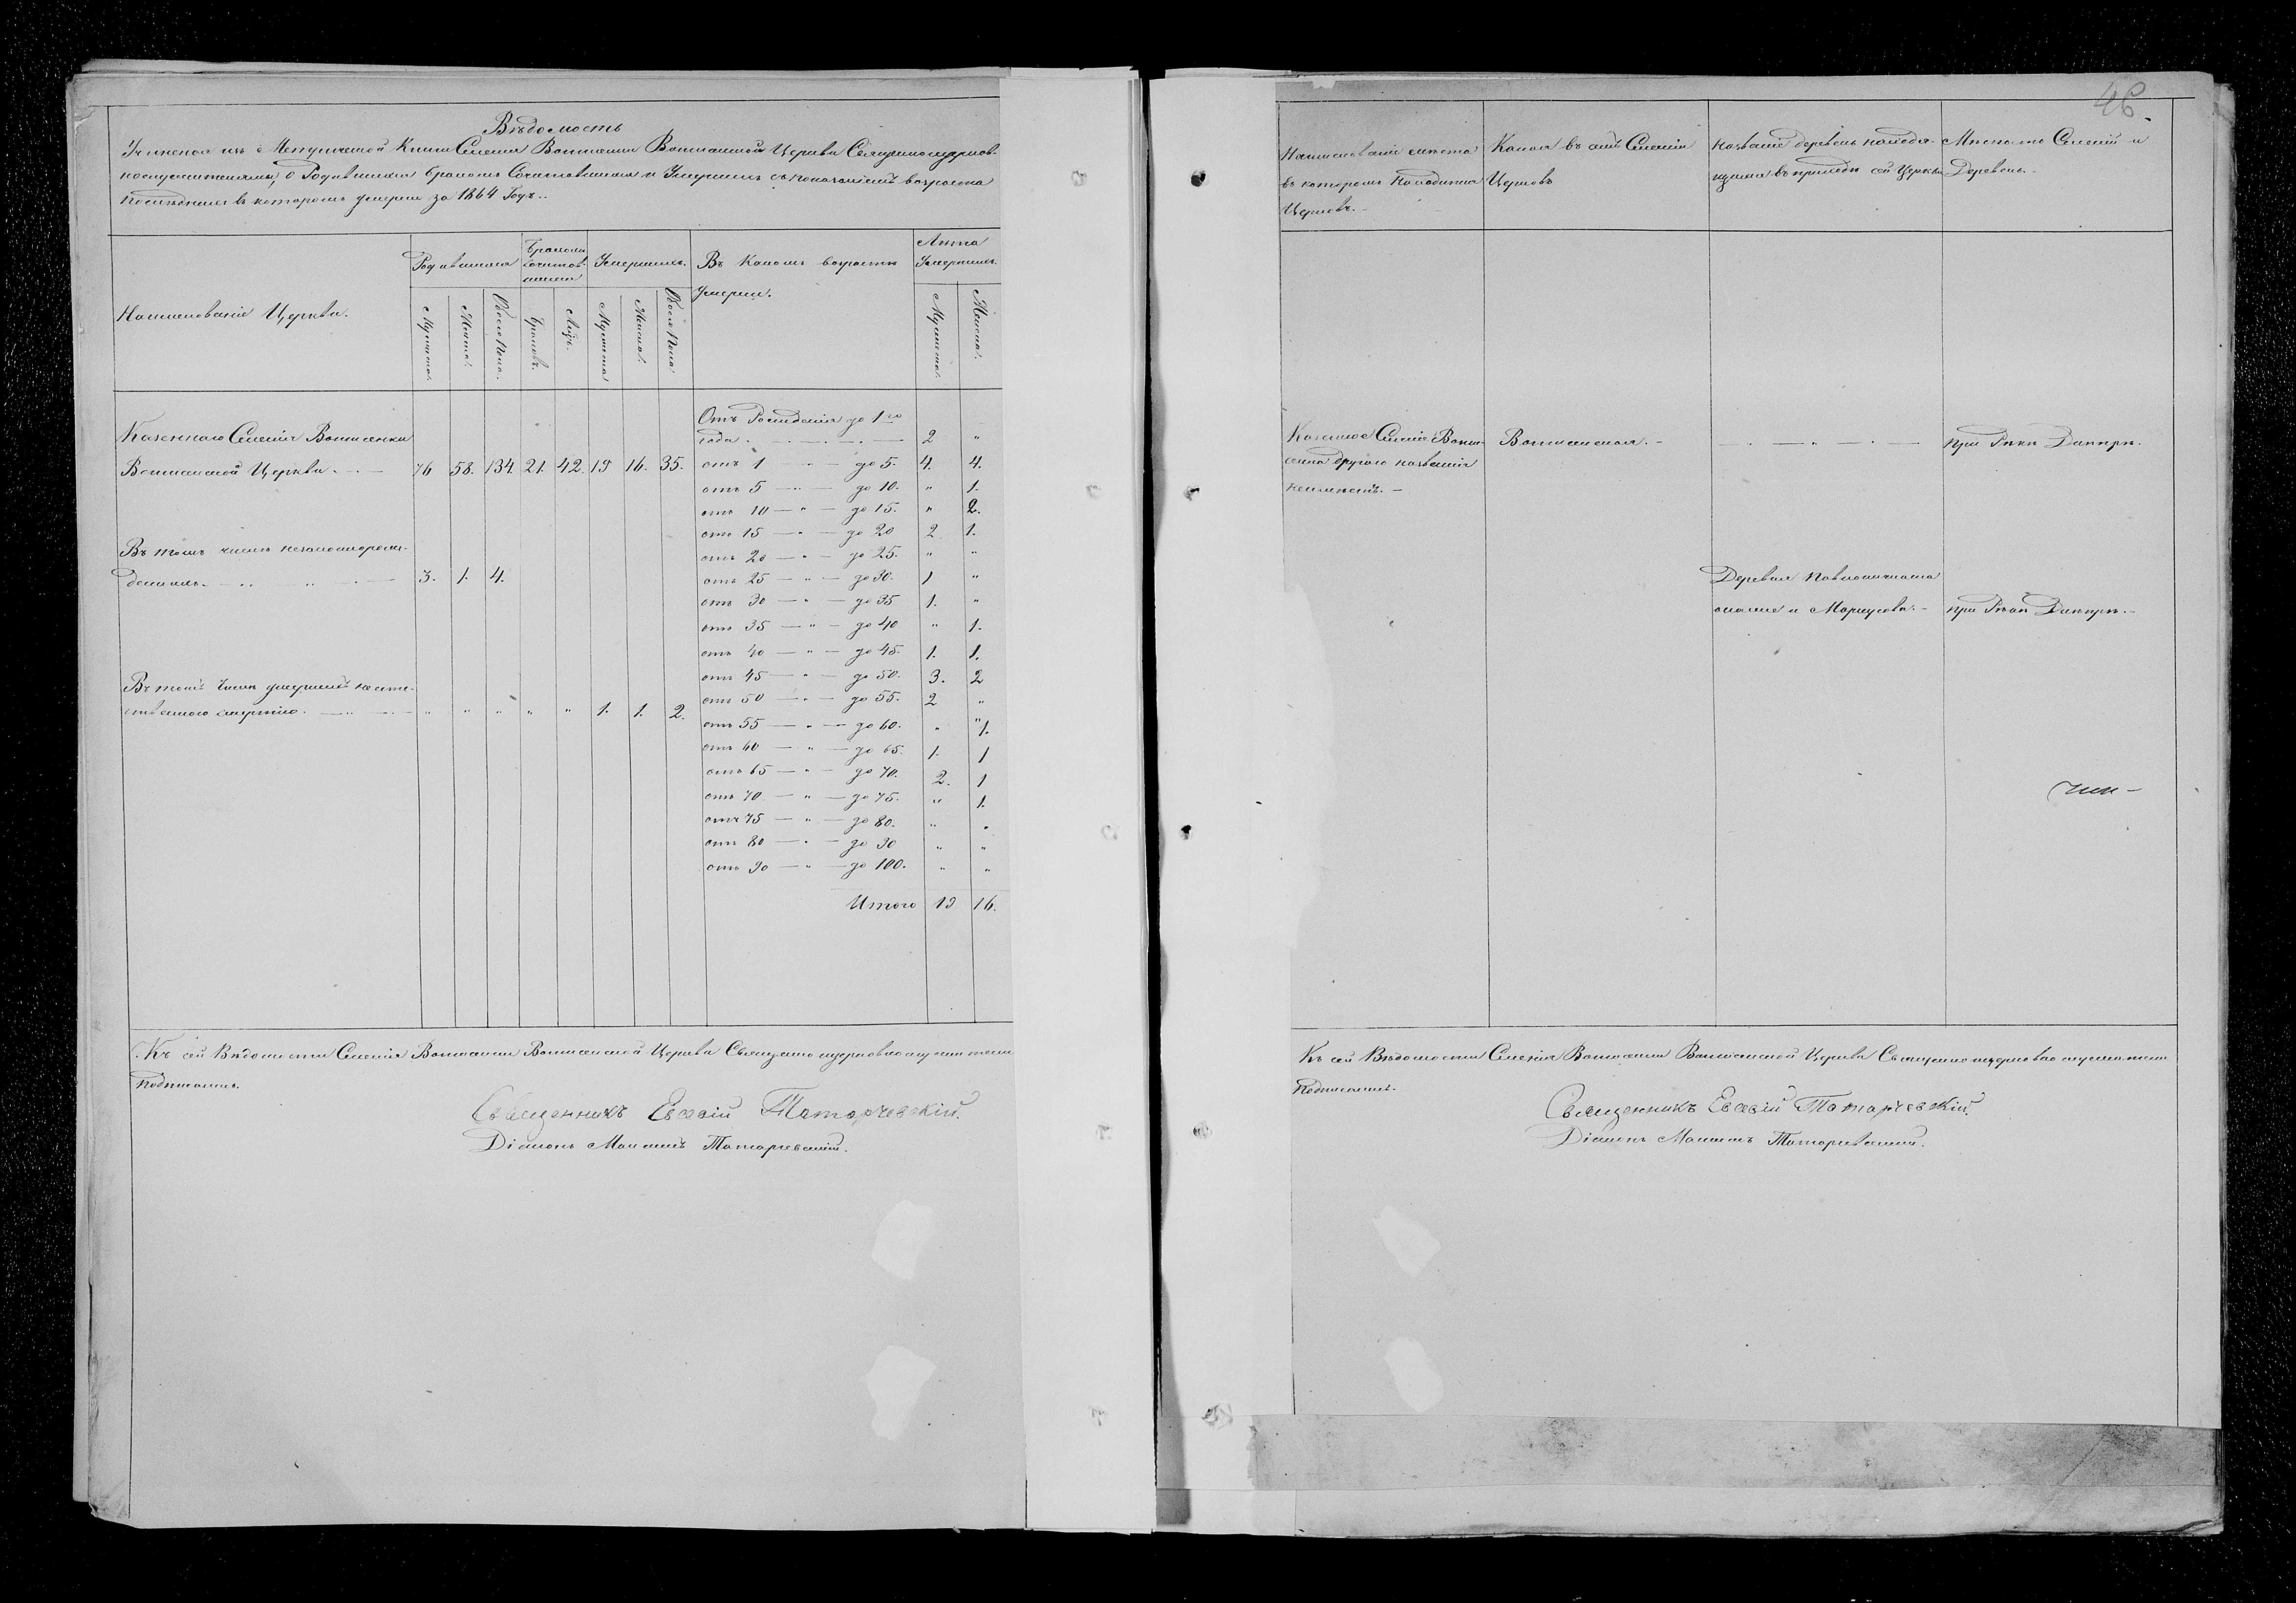 Вѣдомость
Учиненая изъ Метрической Книги Селенія Церкви Священноцерков-
нослужителями, о Родившихся бракомъ Сочетавшихся и Умершихъ съ показаніемъ возраста
послѣднихъ въ которомъ умерли за 1864 Годъ.
Наименованіе Церкви.
Родившихся
Мужеска.
Женска.
Обоего Пола.
Бракомъ
сочетав-
шихся
Браковъ.
Лицъ.
Умершихъ.
Мужеска
Женска.
Обоего Пола
Въ Какомъ возрастѣ
Умерли.
Лѣта
Умершихъ.
Мужеска.
Женска.
Казеннаго Селенія
Церкви. 76 58. 134. 21. 42. 19 16. 35.
Въ томъ числѣ незаконнорож-
денныхъ. 3. 1. 4.
Въ томъ числѣ умершихъ неесте-
ственною смертію. " " " " " 1. 1. 2.
Отъ Рожденія до 1го
года. 2 "
отъ 1 — " — до 5. 4. 4.
отъ 5 — " — до 10. " 1.
отъ 10 — " — до 15. " 2.
отъ 15 — " — до 20 2 1.
отъ 20 — " — до 25. " "
отъ 25 — " — до 30. 1 "
отъ 30 — " — до 35 1. "
отъ 35 — " — до 40 " 1.
отъ 40 — " — до 45. 1. 1.
отъ 45 — " — до 50. 3. 2
отъ 50 — " — до 55. 2 "
отъ 55 — " — до 60. " " 1.
отъ 60 — " — до 65. 1. 1
отъ 65 — " — до 70. 2. 1
отъ 70 — " — до 75. " 1.
отъ 75 — " — до 80. " "
отъ 80 — " — до 90 " "
отъ 90 — " — до 100. " "
Итого 19 16.
Къ сей Вѣдомости Селенія Церкви Священноцерковнослужители
подписались.
Священникъ Евсевій Татарчевскій.
Діаконъ Татарчевскій.
46.
Наименованіе мѣста
въ которомъ находится
Церковь.
Какая въ ономъ Селеніи
Церковь
названіе деревень находя-
щихся въ приходѣ сей Церкви
Мѣстность Селеній и
Деревень.
Казенное Селеніе
другого названія
неимѣетъ.
при Рѣкѣ Днѣпрѣ.
Деревня
и
при Рѣкѣ Днѣпрѣ.
Къ сей Вѣдомости Селенія Церкви Священноцерковнослужители
подписались.
Священникъ Евсевій Татарчевскій.
Діаконъ Татарчевскій.